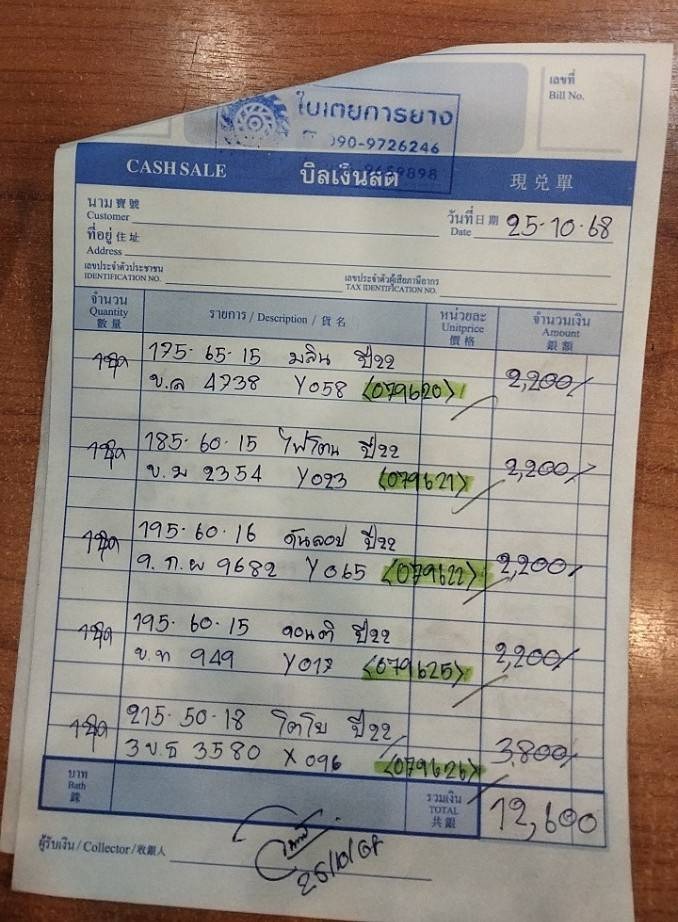 ใบเตยการยาง
090-9726246
9898
เลขที่
Bill No.
CASH SALE บิลเงินสด 現兌單
นาม寶號
Customer
วันที่日期 25-10-68
Date
ที่อยู่住址
Address
เลขประจำตัวประชาชน
IDENTIFICATION NO.
เลขประจำตัวผู้เสียภาษีอากร
TAX IDENTIFICATION NO.
จำนวน
Quantity
數量
รายการ / Description / 貨名
หน่วยละ
Unitprice
價格
จำนวนเงิน
Amount
銀額
1ชุด 175-65-15 มลิน ปี22 2,200/
ข.ล 4738 Y058 <079620>
1ชุด 185-60-15 ไฟโตน ปี22 2,200/
ข.ม 2354 Y023 <079621>
1ชุด 195-60-16 ดันลอป ปี22 2,200/
9.ก.ผ 9682 Y065 <079622>
1ชุด 195-60-15 คอนติ ปี22 2,200/
ข.ท 949 Y017 <079625>
1ชุด 215-50-18 โตโย ปี22 3,800/
3ข.ธ 3580 X096 <079626>
บาท
Bath
銖
รวมเงิน
TOTAL
共銀
12,600
ผู้รับเงิน / Collector / 收銀人
25/10/68